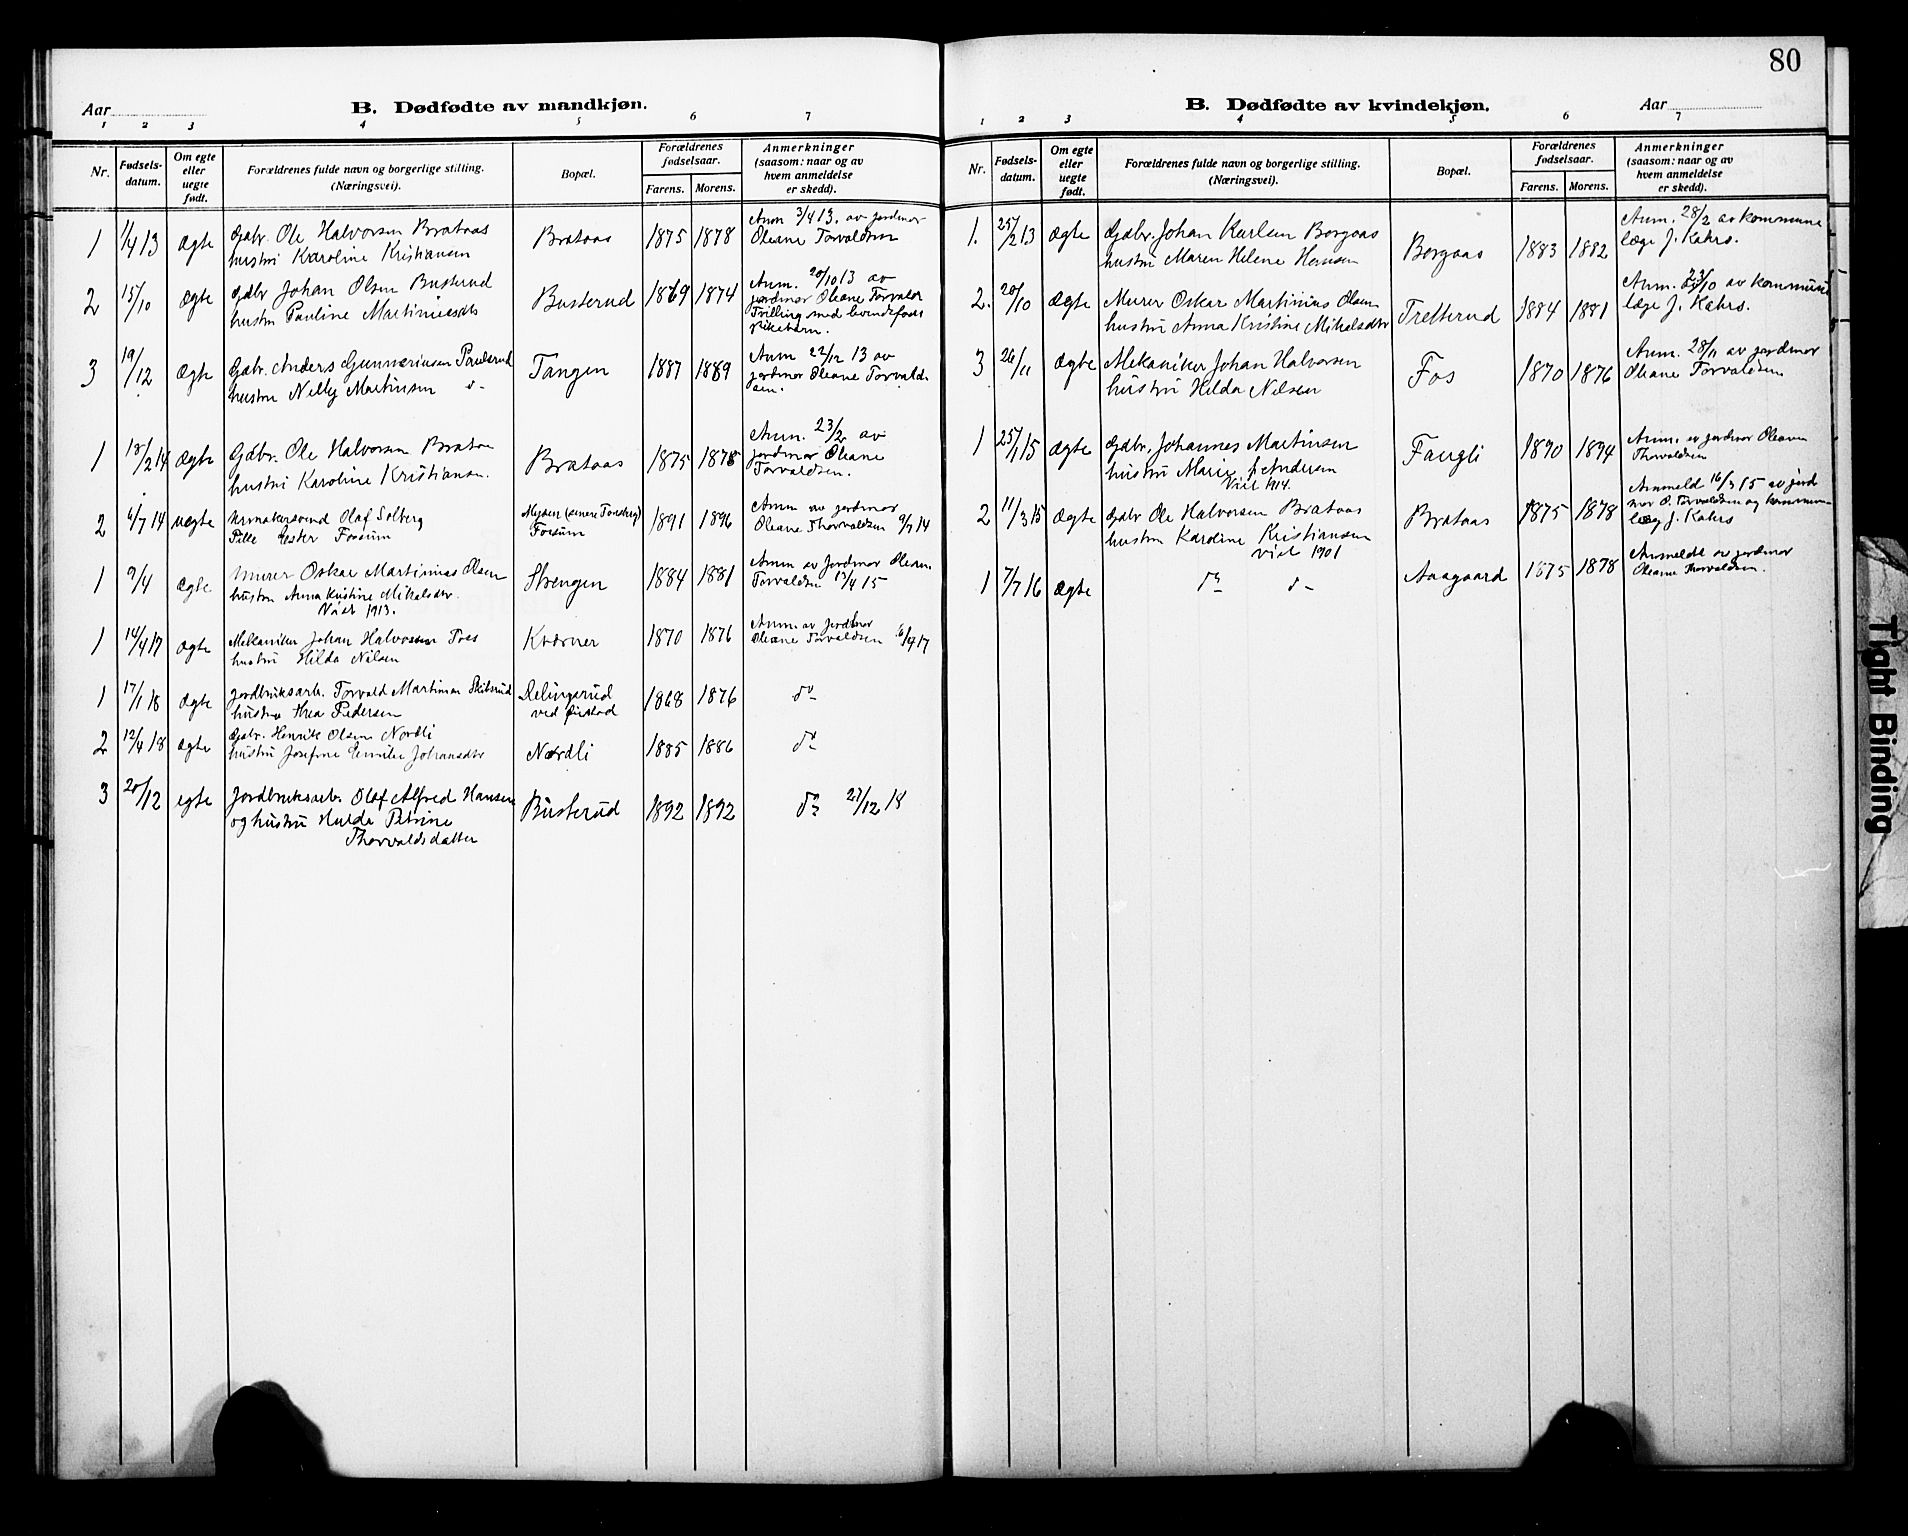 80
Aar
B. Dødfødte av mandkjøn.
1 2 3 4 5 6 7
Nr.
Fødsels-
datum.
Om egte
eller
uegte
født.
Forældrenes fulde navn og borgerlige stilling.
(Næringsvei).
Bopæl.
Forældrenes
fødselsaar.
Farens. Morens.
Anmerkninger
(saasom: naar og av
hvem anmeldelse
er skedd).
1 1/4 13 Ægte Gdbr. Ole Halvorsen Brataas Brataas 1875 1878 Anm 3/4 13. av jordmor
hustru Karoline Kristiansen Oleane Torvaldsen
2 15/10 Ægte Gdbr Johan Olsen Busterud Busterud 1869 1874 Anm. 20/10 13 av
hustru Pauline Martiniusdtr jordmor Oleane Torvalds
Trilling med levendefødt
3 19/12 Ægte Gdbr. Anders Gunnariusen Paulsrud Tangen 1887 1889 Anm 22/12 13 av
hustru Nelly Martinsen jordmor Oleane Torvald-
sen.
1 18/2 14 Ægte Gdbr. Ole Halvorsen Brataa Brataas 1875 1878 Anm. 23/2 av
hustru Karoline Kristiansen. jordmor Oleane
Torvaldsen.
2 6/7 14 uegte Olaf Solberg Mysen 1891 1896 Anm av jordmor
Ester Fossum Fossum Oleane Thorvaldsen 9/7 14
1 9/4 Ægte Murer Oskar Martinius Olsen Strengen 1884 1881 Anm av Jordmor Oleane
hustru Anna Kristine Mikalsdtr. Torvaldsen 15
Viet 1913.
1 14/4 17 Ægte Mekaniker Johan Halvorsen Foss Kværner 1870 1876 Anm. av jordmor
hustru Hilda Nilsen Oleane Torvaldsen 16/4 17
1 17/1 18 Ægte Jordbruksarb. Torvald Martinsen 1868 1876 do
hustru Thea Pedersen ved
2 12/4 18 Ægte Gdbr. Henrik Olsen Nordli Nordli 1885 1886 do
hustru Josefine Emilie Johansdtr
3 20/12 egte Jordbruksarb. Olaf Alfred Hansen Busterud 1892 1892 do 27/12 18
og hustru Hulda Petrine
Thorvaldsdatter
B. Dødfødte av kvindekjøn.
Aar
1 2 3 4 5 6 7
Nr.
Fødsels-
datum.
Om egte
eller
uegte
født.
Forældrenes fulde navn og borgerlige stilling.
(Næringsvei).
Bopæl.
Forældrenes
fødselsaar.
Farens. Morens.
Anmerkninger
(saasom: naar og av
hvem anmeldelse
er skedd).
1. 25/2 13 Ægte Gdbr. Johan Karlsen Borgaas Borgaas 1883 1882 Anm. 28/2 av kommune
hustru Maren Helene Hansen læge J. Kahrs.
2. 20/10 Ægte Murer Oskar Martinius Olsen Tretterud 1884 1881 Anm. 23/10 av kommune
hustru Anna Kristine Mikalsdtr læge J. Kahrs.
3 26/11 Ægte Mekaniker Johan Halvorsen Fos 1870 1876 Anm. 28/11 av jordmor
hustru Hilda Nilsen Oleane Torvaldsen
1 25/1 15 Ægte Gdbr. Johannes Martinsen Faugli 1890 1894 Anm. av jordmor Oleane
hustru Marie f Andersen Thorvaldsen
Viet 1914.
2 11/3 15 Ægte Gdbr Ole Halvorsen Brataas Brataas 1875 1878 Anmeld 16/3 15 av jord
hustru Karoline Kristiansen mor O. Torvaldsen og kommune
viet 1901 læge J. Kahrs
1 7/7 16 Ægte do do Aasgaard 1875 1878 Anmeldt av jordmor
Oleane Thorvaldsen.
Tight Binding